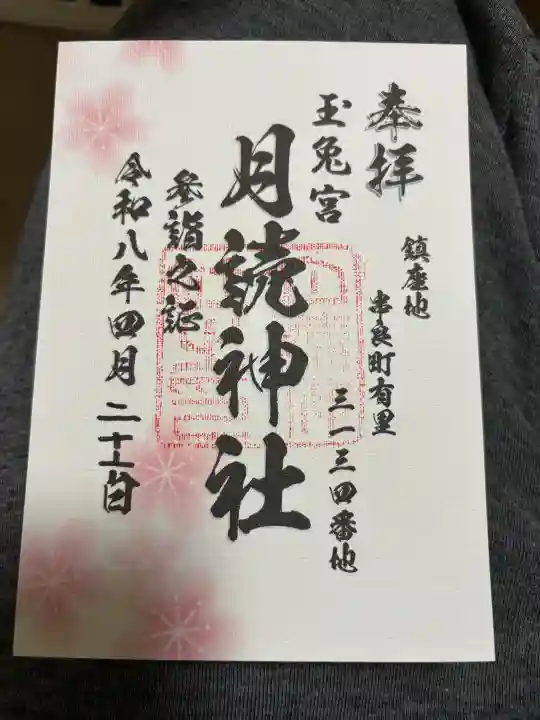 奉拝
鎮座地
串良町有里
三一三四番地
玉兎宮
月読神社
参詣之証
令和八年四月二十七日